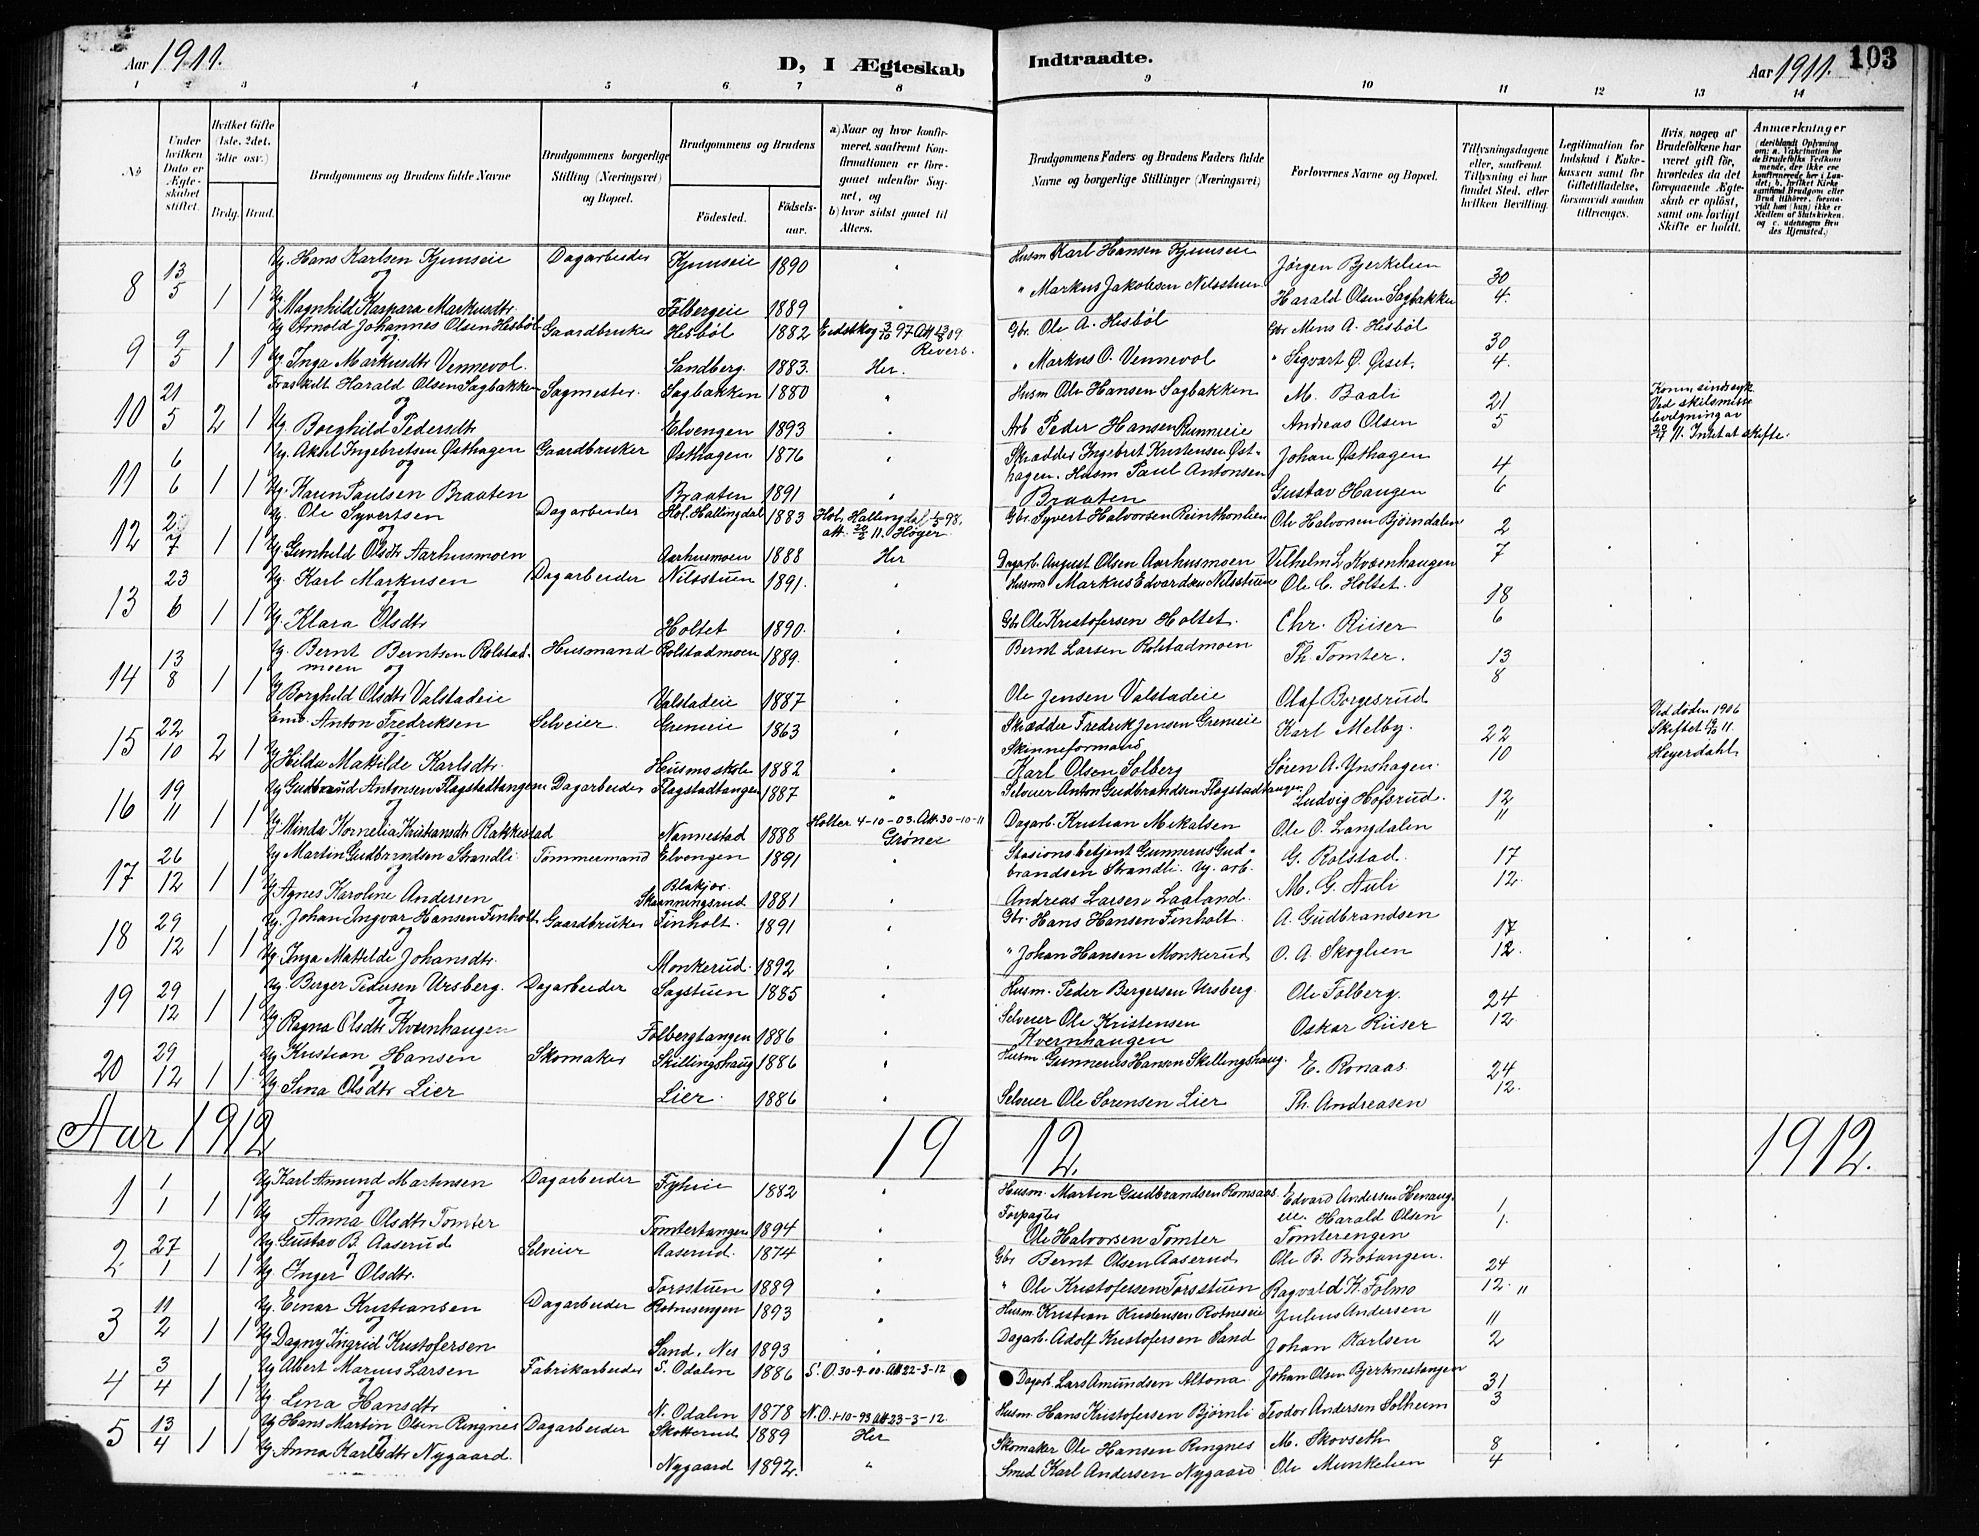 Aar 1911.
D, I Ægteskab Indtraadte.
Aar 1911.
103
1 2 3 4 5 6 7 8 9 10 11 12 13 14
No
Under hvilken Dato er Ægteskabet stiftet.
Hvilket Gifte (1ste, 2det, 3die osv.)
Brdg. Brud.
Brudgommens og Brudens fulde Navne
Brudgommens borgerlige Stilling (Næringsvei) og Bopæl.
Brudgommens og Brudens
Födested.
Födsels-aar.
a) Naar og hvor konfirmeret, saafremt Konfirmationen er foregaaet udenfor Sognet, og
b) hvor sidst gaaet til Alters.
Brudgommens Faders og Brudens Faders fulde Navne og borgerlige Stillinger (Næringsvei)
Forlovernes Navne og Bopæl.
Tillysningsdagene eller, saafremt Tillysning ei har fundet Sted, efter hvilken Bevilling.
Legitimation for Indskud i Enkekassen samt for Giftetilladelse, forsaavidt saadan tiltrænges.
Hvis nogen af Brudefolkene har været gift för, hvorledes da det foregaaende Ægteskab er oplöst, samt om lovligt Skifte er holdt.
Anmærkninger
8 13/5 1 1 Ug. Hans Karlsen Kjumseie Dagarbeider Kjumseie 1890 Husm Karl Hansen Kjumseie Jørgen Bjerkelien 30
og Ug. Magnhild Kaspara Markusdtr. Folbergeie 1889 " Markus Jakobsen Nilsstuen Harald Olsen Sagbakken 4.
9 9/5 1 1 Ug Arnold Johannes Olsen Hesbøl Gaardbruker Hesbøl 1882 Eidskog Gbr. Ole A. Hesbøl Gbr Mens A. Hesbøl 30
Ug. Inga Markusdtr Vennevol. Sandberg. 1883. Her. " Markus O. Vennevol " Sigvart Ø. Øiset. 4.
10 21/5 2 1 Fraskilt Harald Olsen Sagbakken Sagmester. Sagbakken 1880 " Husm Ole Hansen Sagbakken M. Baali 21
og Ug. Borghild Pedersdtr Elvengen 1893 Arb Peder Hansen Rumseie Andreas Olsen 5
Konen sindssyk. Ved skilsmisse bevilgning av 11. Intet at skifte.
11 6/6 1 1 Ug. Aksel Ingebretsen Østhagen Gaardbruker Østhagen 1876 Skrædder Ingebret Kristensen Øst- Johan Østhagen 4
og Ug. Karen Paulsen Braaten Braaten 1891 hagen. Husm Paul Antonsen Braaten Gustav Haugen 6
12 7 1 1 Ug. Ole Syvertsen Dagarbeider Hol. Hallingdal 1883 Hol. Hallingdal 98. att. 11. Høyer Gbr. Syvert Halvorsen Reinthonlien Ole Halvorsen Bjørndalen 2
og Ug. Gunhild Olsdtr Aarhusmoen Aarhusmoen 1888 Her Dagarb. August Olsen Aarhusmoen Vilhelm L Kværnhaugen 7
13 23/6 1 1 Ug. Karl Markusen Dagarbeider Nilsstuen 1891. Husm Markus Edvardsen Nilsstuen Ole C. Holtet. 18
og Ug. Klara Olsdtr Holtet 1890. Gbr Ole Kristofersen Holtet. Chr. Riiser 6
14 13/8 1 1 Ug. Bernt Berntsen Rolstad- Husmand Rolstadmoen 1889. Bernt Larsen Rolstadmoen Th. Tomter. 13
moen og Ug Borghild Olsdtr Valstadeie Valstadeie 1887 Ole Jensen Valstadeie Olaf Borgesrud 8
15 22/10 2 1 Enm. Anton Fredriksen Selveier. Gremeie 1863 Skrædder Fredrik Jensen Gremeie Karl Melby. 22
og Ug Hilda Matilde Karlsdtr. Husmoskole 1882 " Skinneformand Karl Olsen Solberg Søren A. Ynshagen. 10
Ved døden 1906 Skiftet 11. Heyerdahl
16 19/11 1 1 Ug Gudbrand Antonsen Flagstadtangen Dagarbeider Flagstadtangen 1887 " Selveier Anton Gudbrandsen Flagstadtangen Ludvig Hofsrud. 12
og Ug. Minda Kornelia Kristiansdtr Rakkestad Nannestad 1888 Holter 4-10-03. Att. 30-10-11 Grøner Dagarb. Kristian Mikalsen Ole O. Langdalen 11
17 26/12 1 1 Ug Martin Gudbrandsen Strandli Tømmermand Elvengen 1891 Stasionsbetjent Gunnerus Gud- G. Rolstad. 17
og Ug Agnes Karoline Andersen Blakjer. Skrænningsrud 1881 brandsen Strandli. Ug. arb. Andreas Larsen Laaland. M. G. Auli 12.
18 29/12 1 1 Ug. Johan Ingvar Hansen Finholt Gaardbruker Finholt. 1891 Gbr. Hans Hansen Finholt. A. Gudbrandsen 17
og Ug. Inga Matilde Johansdtr. Monkerud. 1892 " Johan Hansen Monkerud O. A. Skoglien 12.
19 29/12 1 1 Ug. Berger Pedersen Ursberg. Dagarbeider Sagstuen 1885 Husm. Peder Bergersen Ursberg. Ole Folberg. 24
og Ug. Ragna Olsdtr Kværnhaugen Folbergtangen 1886 Selveier Ole Kristensen Kvernhaugen Oskar Riiser 12
20 29/12 1 1 Ug Kristian Hansen Skomaker Skillingshaug 1886 Husm Gunnerius Hansen Skillingshaug. E. Ronaas 24
og Ug Lina Olsdtr Lier Lier. 1886 Selveier Ole Sørensen Lier Th. Andreasen 12.
Aar 1912 1912. 1912.
1 1/1 1 1 Ug Karl Amund Martinsen Dagarbeider 1882 Husm. Martin Gudbrandsen Romsaas Edvard Andersen Henaug- 1
og Ug Anna Olsdtr Tomter Tomtertangen 1894 Forpagter Ole Halvorsen Tomter eie. Harald Olsen Tomterengen 1.
2 27/1 1 1 Ug. Gustav B. Aaserud Selveier Aaserud. 1874 Gbr Bernt Olsen Aaserud Ole B. Brotangen. 24
og Ug Inger Olsdtr. Torsstuen 1889 " Ole Kristofersen Torsstuen Ragvald K. Folmo 12. "
3 11/2 1 1 Ug. Einar Kristiansen Dagarbeider Rotnesengen 1893 Husm. Kristian Kristensen Rotneseie Julius Andersen 11
og Ug Dagny Ingrid Kristofersen Sand, Nes 1893 Dagarb. Adolf Kristofersen Sand Johan Karlsen 2
4 3/4 1 1 Ug Albert Marius Larsen Fabrikarbeider S. Odalen 1886 S. O. 30-9-00. Att 22-3-12 Dagarb. Lars Amundsen Altona Johan Olsen Bjerknestangen 31
og Ug Lena Hansdtr N. Odalen 1878 N. O. 1-10-93 Att 23-3-12. Husm. Hans Kristofersen Bjørnli Teodor Andersen Solheim 3
5 13/4 1 1 Ug Hans Martin Olsen Ringnes Dagarbeider Skotterud 1889 Her Skomaker Ole Hansen Ringnes M. Skovseth 8
og Ug Anna Karlsdtr Nygaard. Nygaard 1892. " Smed Karl Andersen Nygaard Ole Munkelien 4